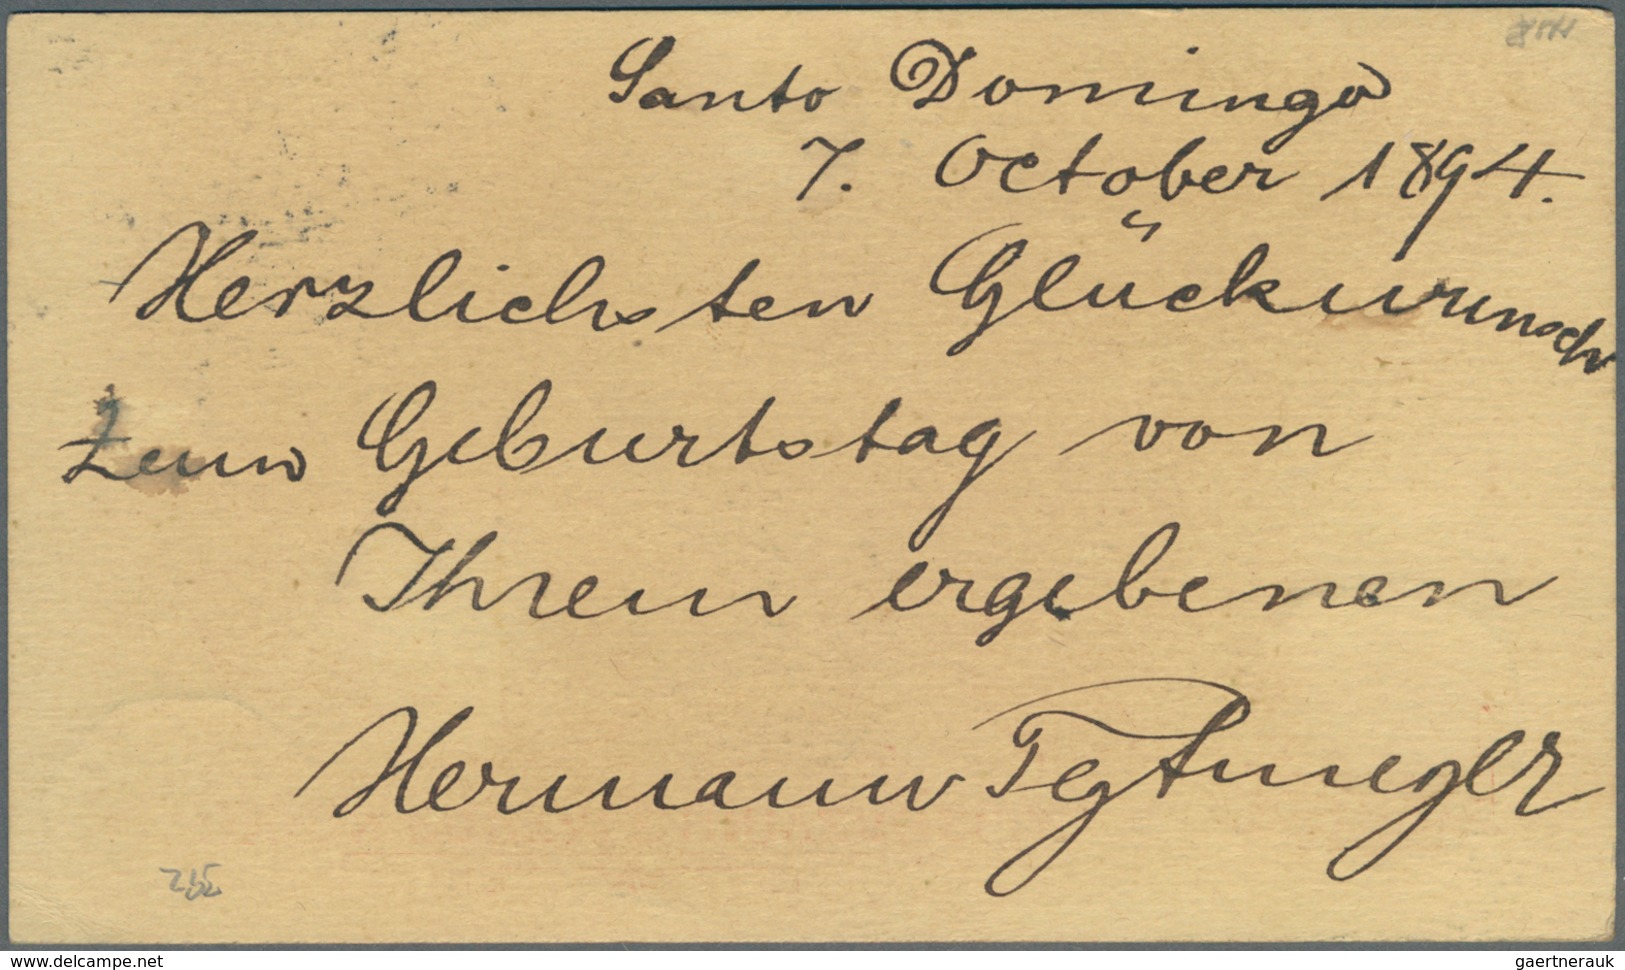 Santo Domingo
7. October 1894.
Herzlichsten Glückwunsch
zum Geburtstag von
Ihrem ergebenen
Hermann Tegtmeyer
www.delcampe.net
gaertnerauk